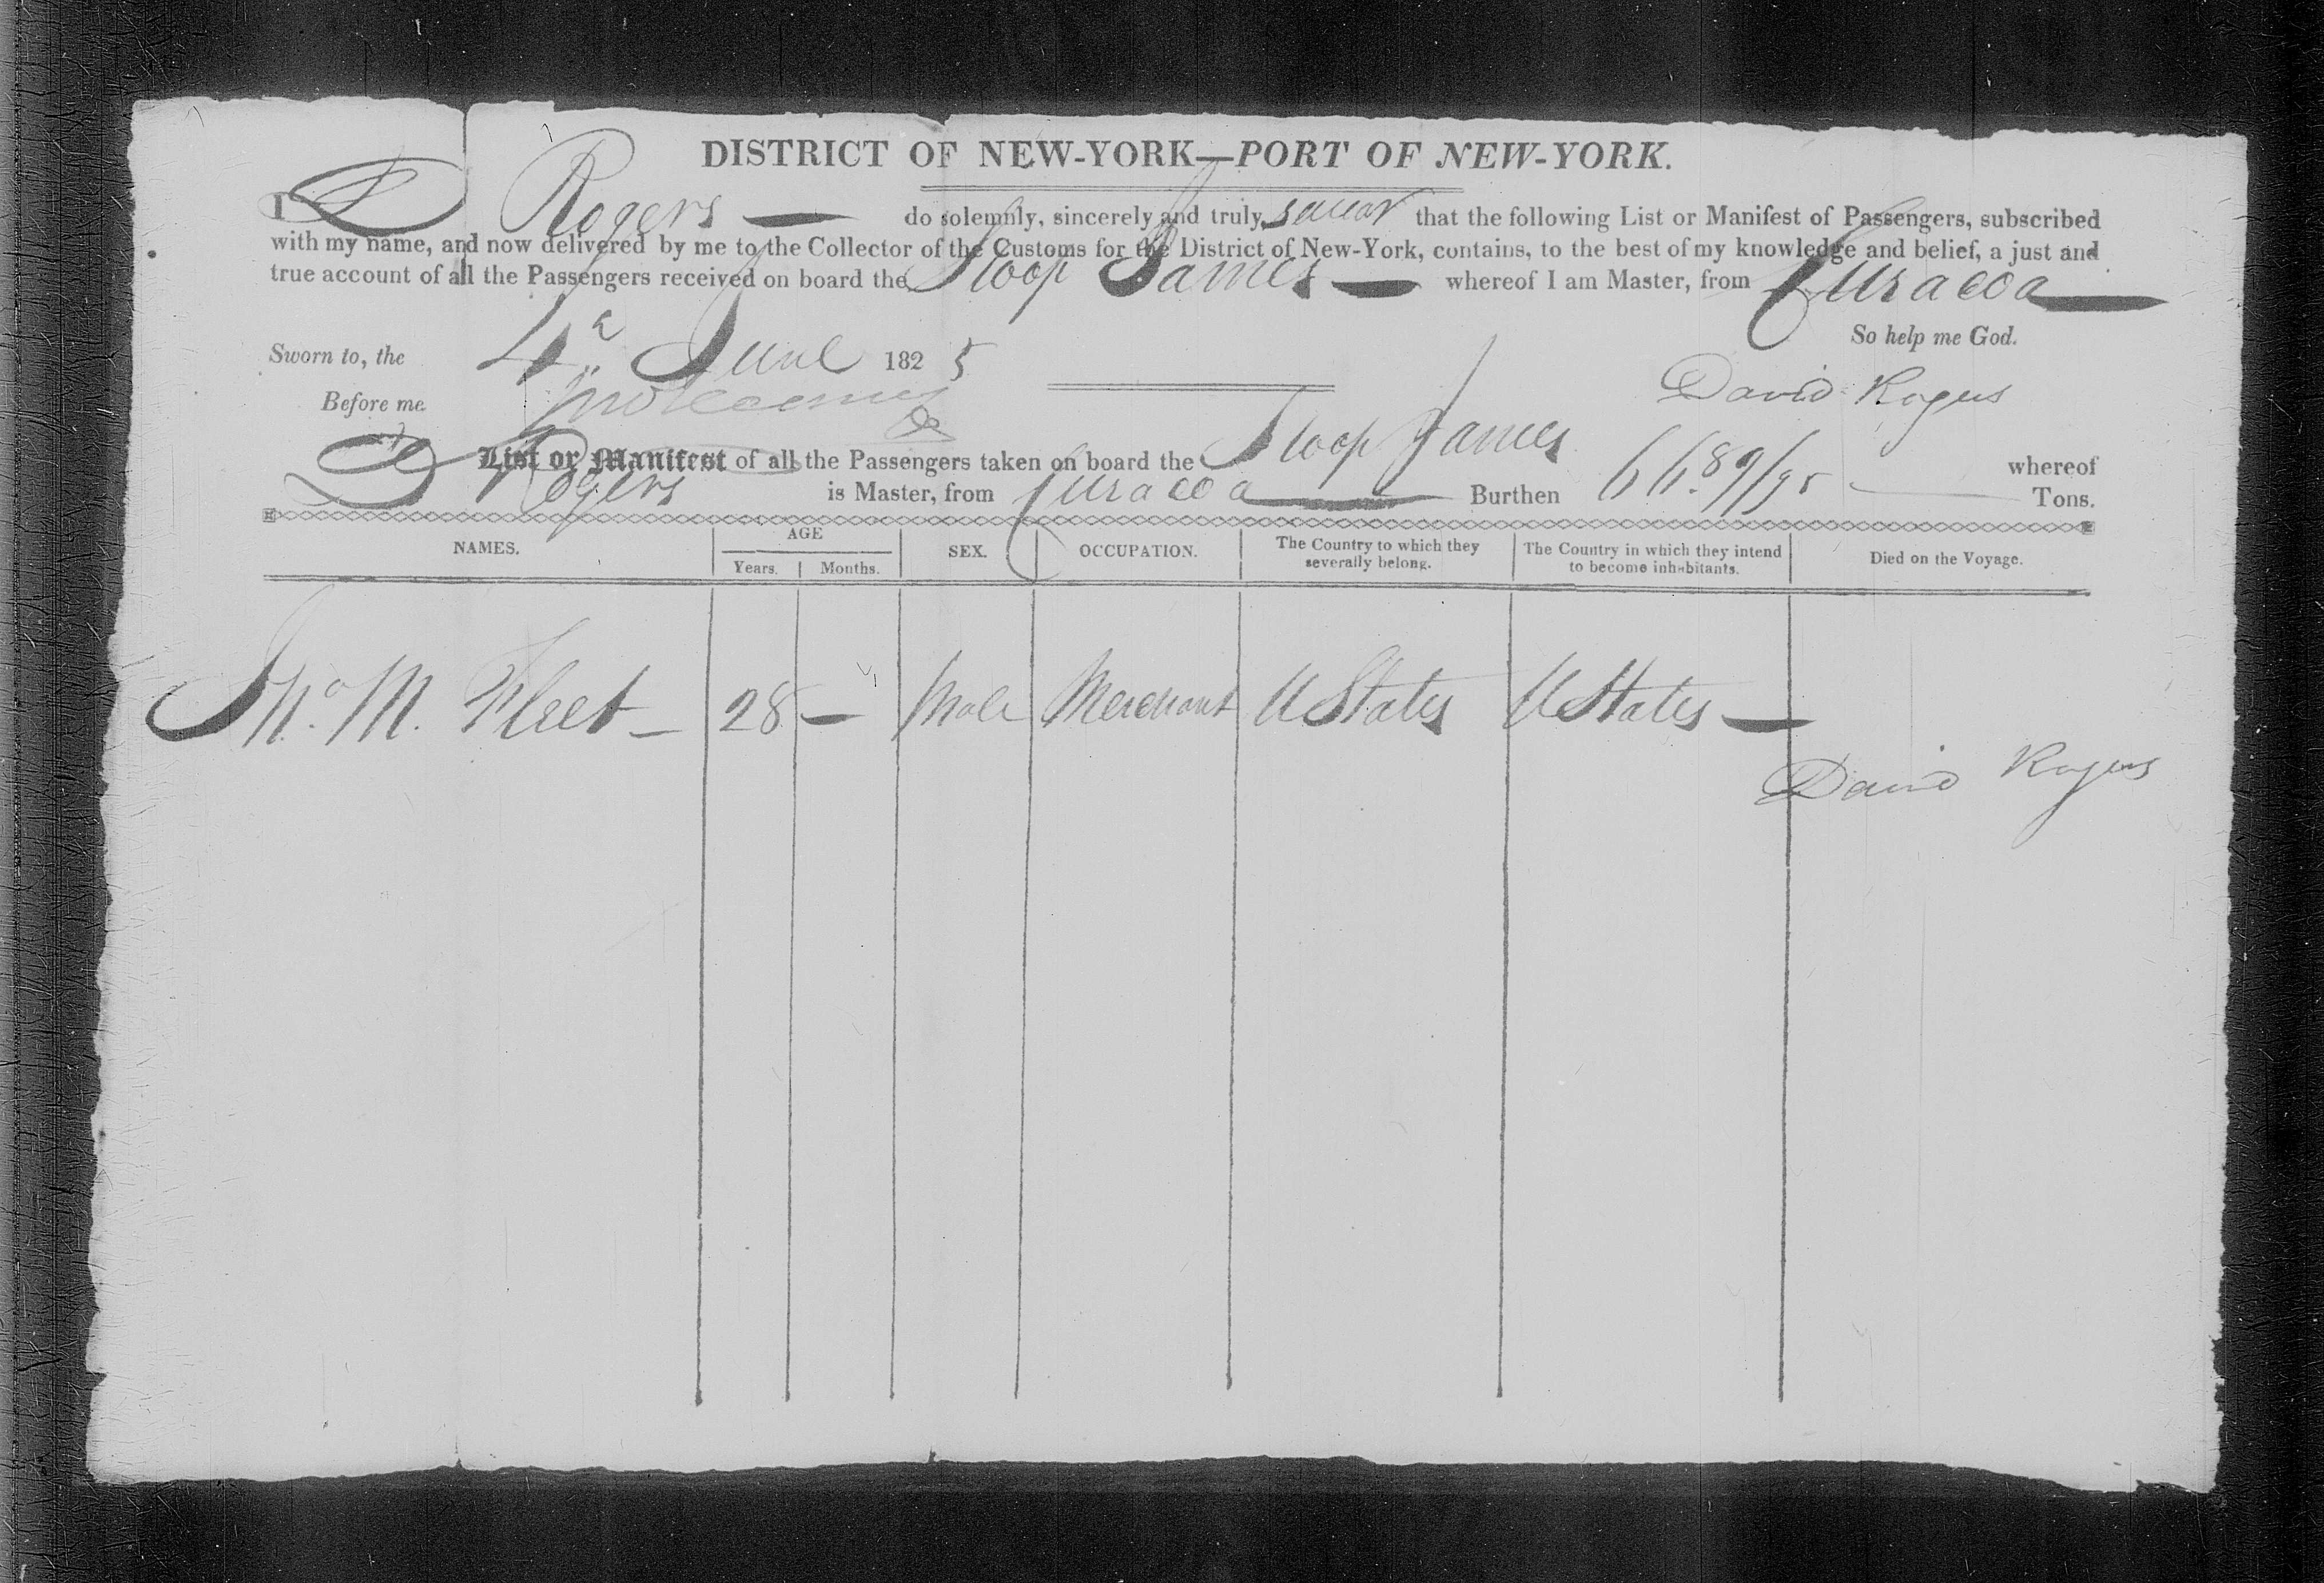 DISTRICT OF NEW-YORK—PORT OF NEW-YORK.
I D Rogers — do solemnly, sincerely and truly swear that the following List or Manifest of Passengers, subscribed
with my name, and now delivered by me to the Collector of the Customs for the District of New-York, contains, to the best of my knowledge and belief, a just and
true account of all the Passengers received on board the Sloop James — whereof I am Master, from Curacoa —
So help me God.
Sworn to, the 4 June 1825
Before me David Rogers
List or Manifest of all the Passengers taken on board the Sloop James whereof
D Rogers is Master, from Curacoa — Burthen 66 89/95 — Tons.
NAMES. AGE Years. Months. SEX. OCCUPATION. The Country to which they severally belong. The Country in which they intend to become inhabitants. Died on the Voyage.
M. Fleet — 28 — Male Merchant U States U States —
David Rogers